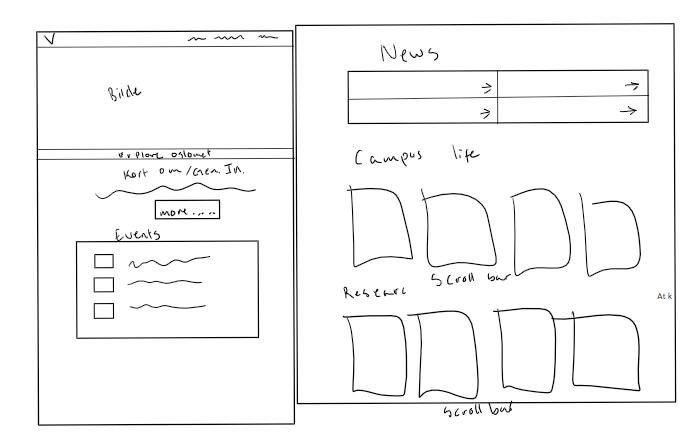 Bilde
explore oslomet
Kort om/Gen. In.
more.....
Events
News
Campus life
Scroll bar
Researc
Atik
Scroll bar